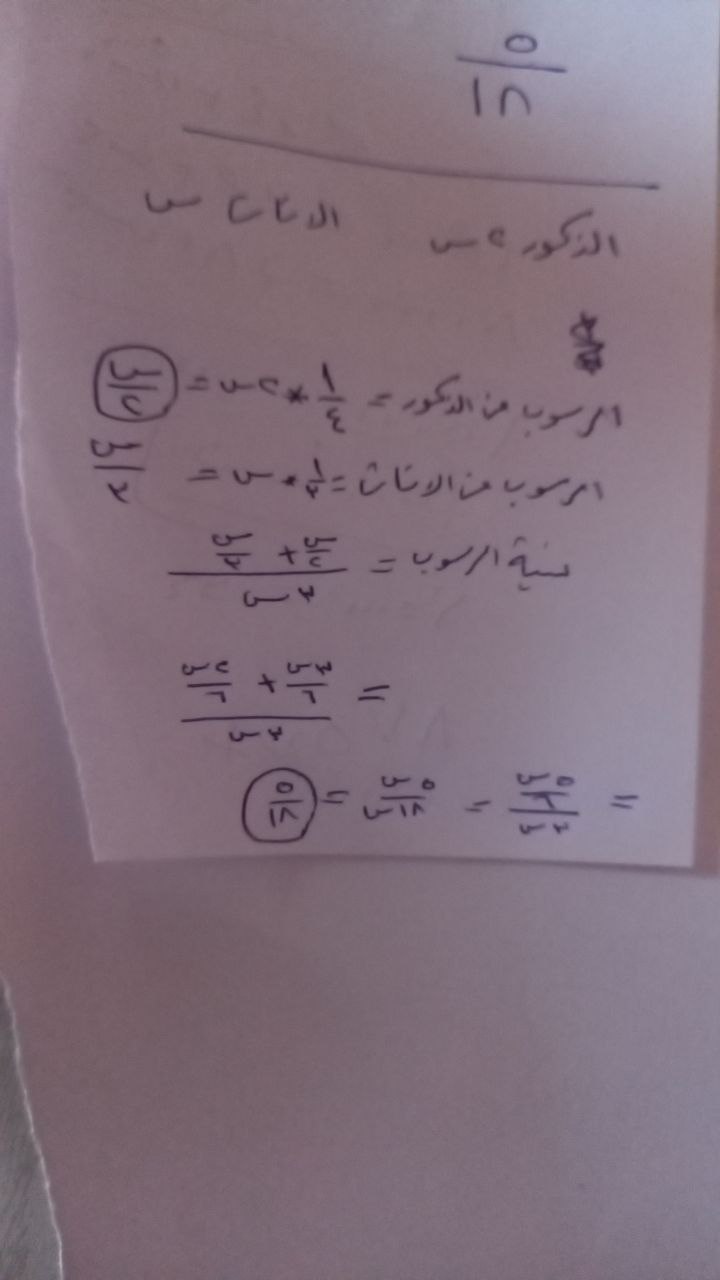 ٥/١٨
الذكور ٢س الاناث س
الرسوب من الذكور = ١/٤ * ٢س = س/٢
الرسوب من الاناث = ١/٣ * س = س/٣
نسبة الرسوب = (س/٢ + س/٣)/٣س
= (٣س/٦ + ٢س/٦)/٣س
= (٥س/٦)/٣س = ٥س/١٨س = ٥/١٨